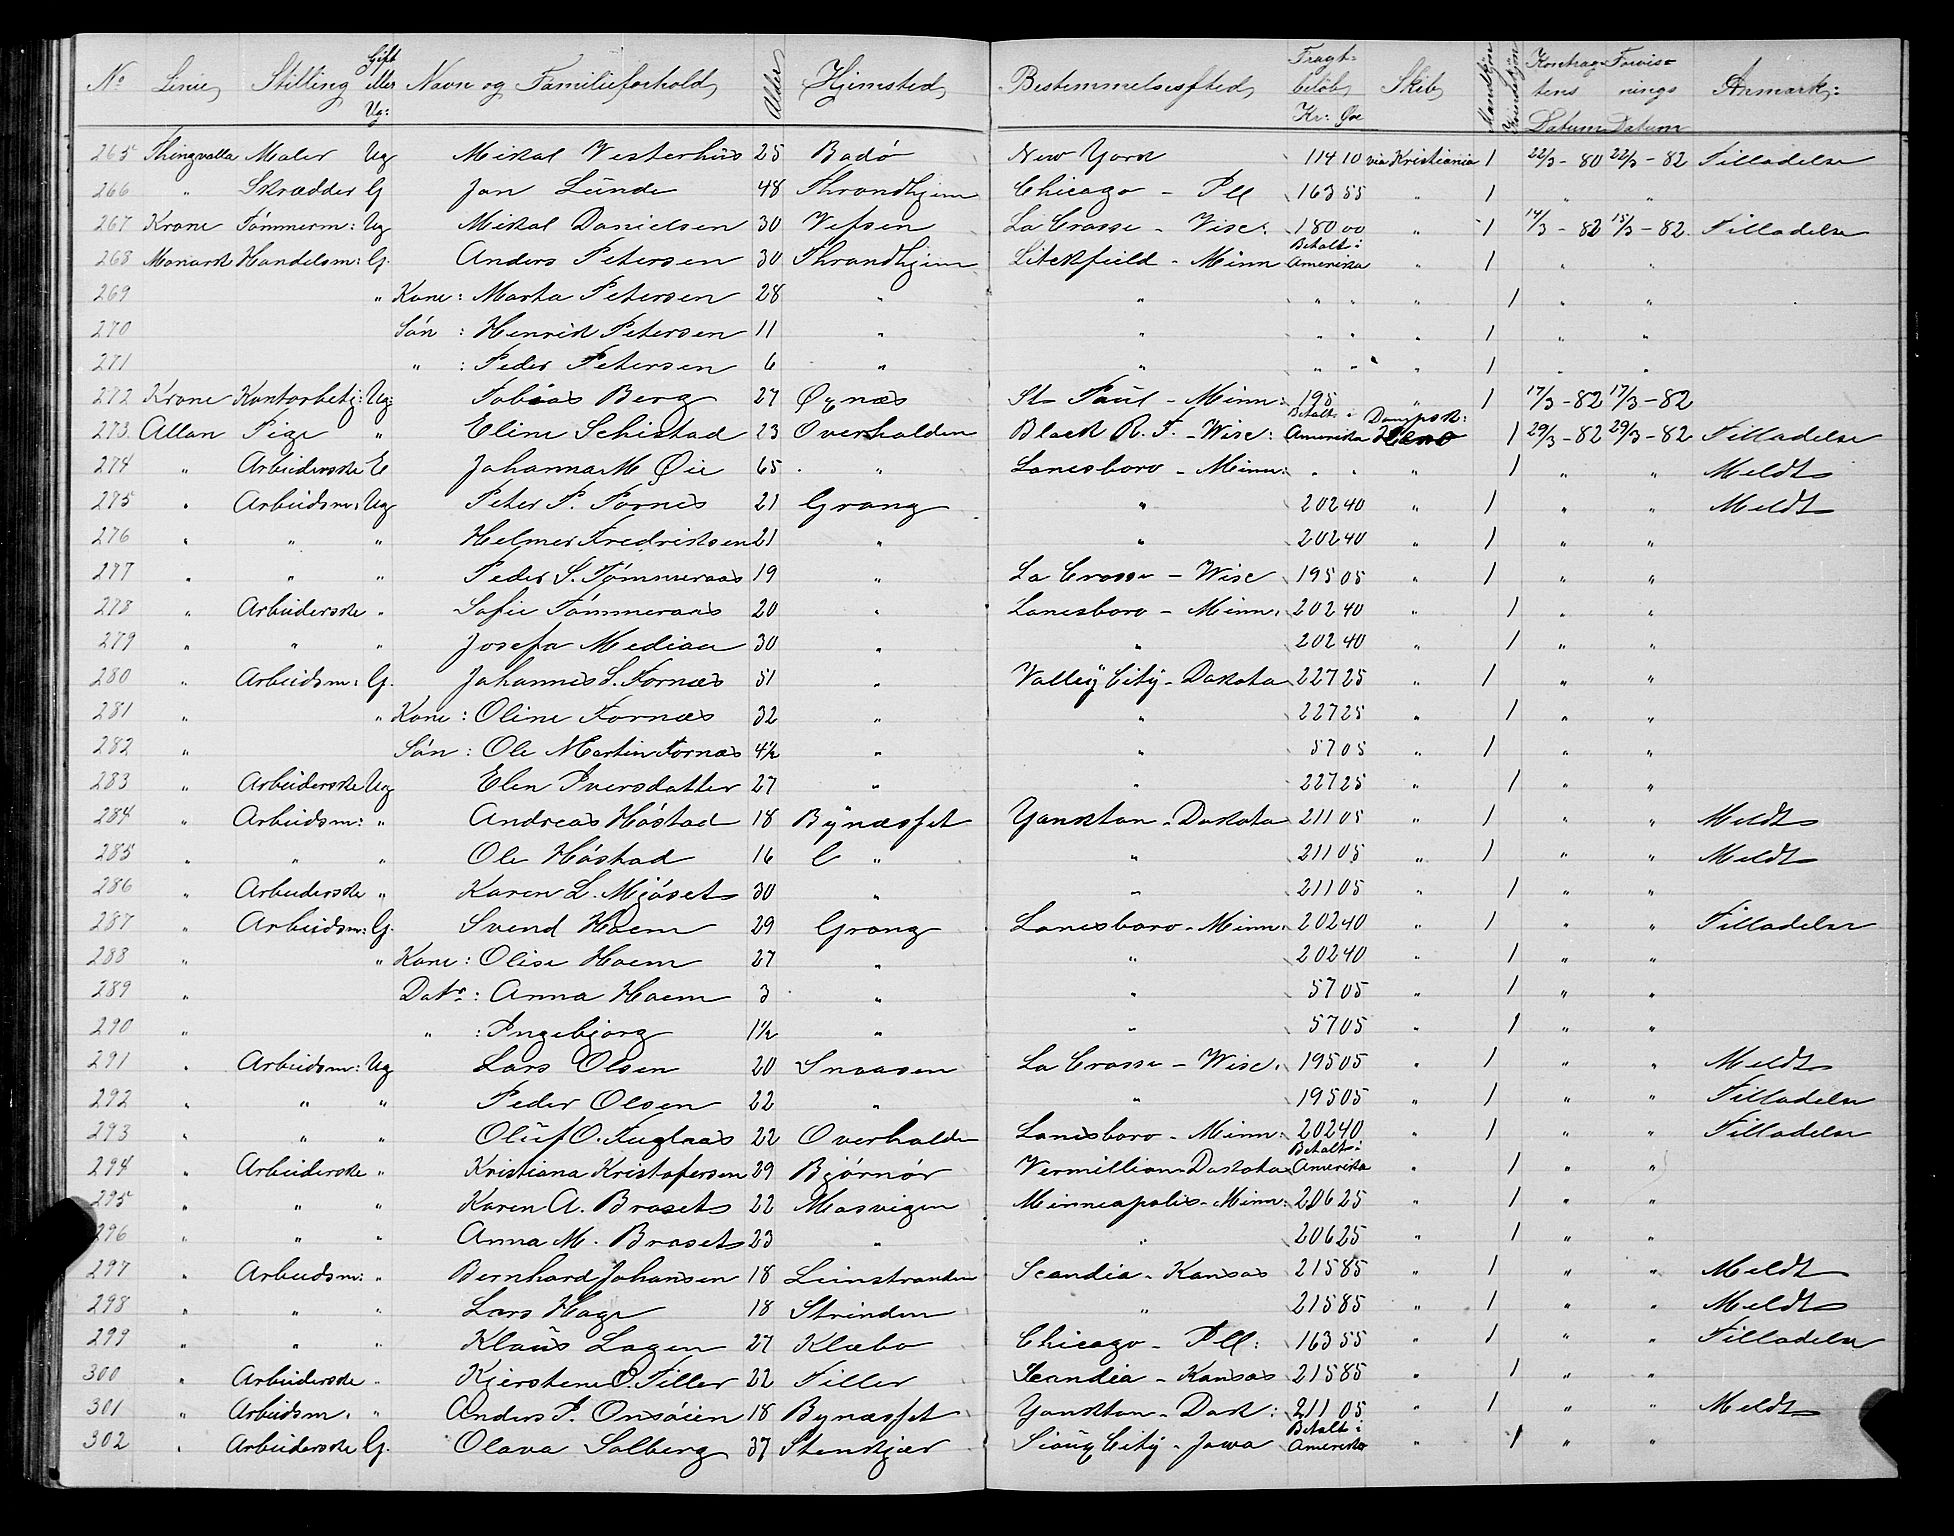 No Linie Stilling Gift eller Ug: Navn og Familieforhold Alder Hjemsted Bestemmelsessted Fragtbeløb Kr: Øre Skib Mandkjøn Kvindekjøn Kontraktens Datum Forevisnings Datum Anmærk:
265 Thingvalla Maler Ug Mikal Vesterhus 25 Bodø New York 114 10 via Kristiania 1 22/3 - 80 22/3 - 82 Tilladelse
266 " Skrædder G Jon Lunde 48 Throndhjem Chicago - Ill 163 55 " 1 " "
267 Krone Tømmerm: Ug Mikal Danielsen 30 Vefsen La Crosse - Wisc: 180 00 " 1 14/3 - 82 15/3 - 82 Tilladelse
268 Monark Handelsm: G. Anders Petersen 30 Throndhjem Litchfield - Minn Betalt i Amerika " 1 " "
269 " Kone: Marta Petersen 28 " " " " " 1 " "
270 Søn: Henrik Petersen 11 " " " " " 1 " "
271 " : Peder Petersen 6 " " " " " 1 " "
272 Krone Kontorbetj: Ug: Tobias Berg 27 Øynæs St Paul - Minn: 195 " 1 17/3 - 82 17/3 - 82
273. Allan Pige " Eline Schistad 23 Overhalden Black R. F. - Wisc: Betalt i Amerika Dampsk: Hero 1 29/3 - 82 29/3 - 82 Tilladelse
274 " Arbeiderske E Johanna M Øie 65 " Lanesboro - Minn: " " " 1 " " Meldt
275 " Arbeidsm: Ug Peter P. Fornes 21 Grong " 202 40 " 1 " " Meldt
276 " " " Helmer Fredriksen 21 " " 202 40 " 1 " "
277 " " " Peder S. Tømmeraas 19 " La Crosse - Wisc 195 05 " 1 " "
278 " Arbeiderske " Sofie Tømmeraas 20 " Lanesboro - Minn. 202 40 " 1 " "
279 " " " Josefa Mediaa 30 " " 202 40 " 1 " "
280 " Arbeidsm: G. Johannes S. Fornæs 51 " Valley City - Dakota 227 25 " 1 " "
281 " " Kone: Oline Fornæs 32 " " 227 25 " 1 " "
282 " Søn: Ole Martin Fornæs 4½ " " 57 05 " 1 " "
283 " Arbeiderske Ug Elen Iversdatter 27 " " 227 25 " 1 " "
284 " Arbeidsm: " Andreas Høstad 18 Bynæsset Yankton - Dakota 211 05 " 1 " " Meldt
285 " " " Ole Høstad 16 " " 211 05 " 1 " " Meldt
286 " Arbeiderske " Karen L. Mjøset 30 " " 211 05 " 1 " "
287 " Arbeidsm: G. Svend Hoem 29 Grong Lanesboro - Minn: 202 40 " 1 " " Tilladelse
288 " " Kone: Olise Hoem 27 " " 202 40 " 1 " "
289 " Datr: Anna Hoem 3 " " 57 05 " 1 " "
290 " " : Ingebjorg 1½ " " 57 05 " 1 " "
291 " Arbeidsm: Ug Lars Olsen 20 Snaasen La Crosse - Wisc. 195 05 " 1 " " Meldt
292 " " " Peder Olsen 22 " " 195 05 " 1 " " Tilladelse
293 " " " Oluf O. Fuglaas 22 Overhalden Lanesboro - Minn: 202 40 " 1 " " Tilladelse
294 " Arbeiderske " Kristiana Kristofersen 29 Bjørnør Vermillion Dakota Betalt i Amerika " 1 " "
295 " " " Karen A. Braset 22 Mosvigen Minneapolis - Minn: 206 25 " 1 " "
296 " " " Anna M. Braset 23 " " 206 25 " 1 " "
297 " Arbeidsm: " Bernhard Johansen 18 Leinstranden Scandia - Kansas 215 85 " 1 " " Meldt
298 " " " Lars Hage 18 Strinden " 215 85 " 1 " " Meldt
299 " " " Klaus Lagen 27 Klæbo Chicago - Ill: 163 55 " 1 " " Tilladelse
300 " Arbeiderske " Kjerstene O. Tiller 22 Tiller Scandia - Kansas 215 85 " 1 " "
301 " Arbeidsm. " Anders P. Onsøien 18 Bynæsset Yankton - Dak: 211 05 " 1 " " Meldt
302 " Arbeiderske G. Olava Solberg 37 Stenkjær Sioux City - Jowa Betalt i Amerika " 1 " "